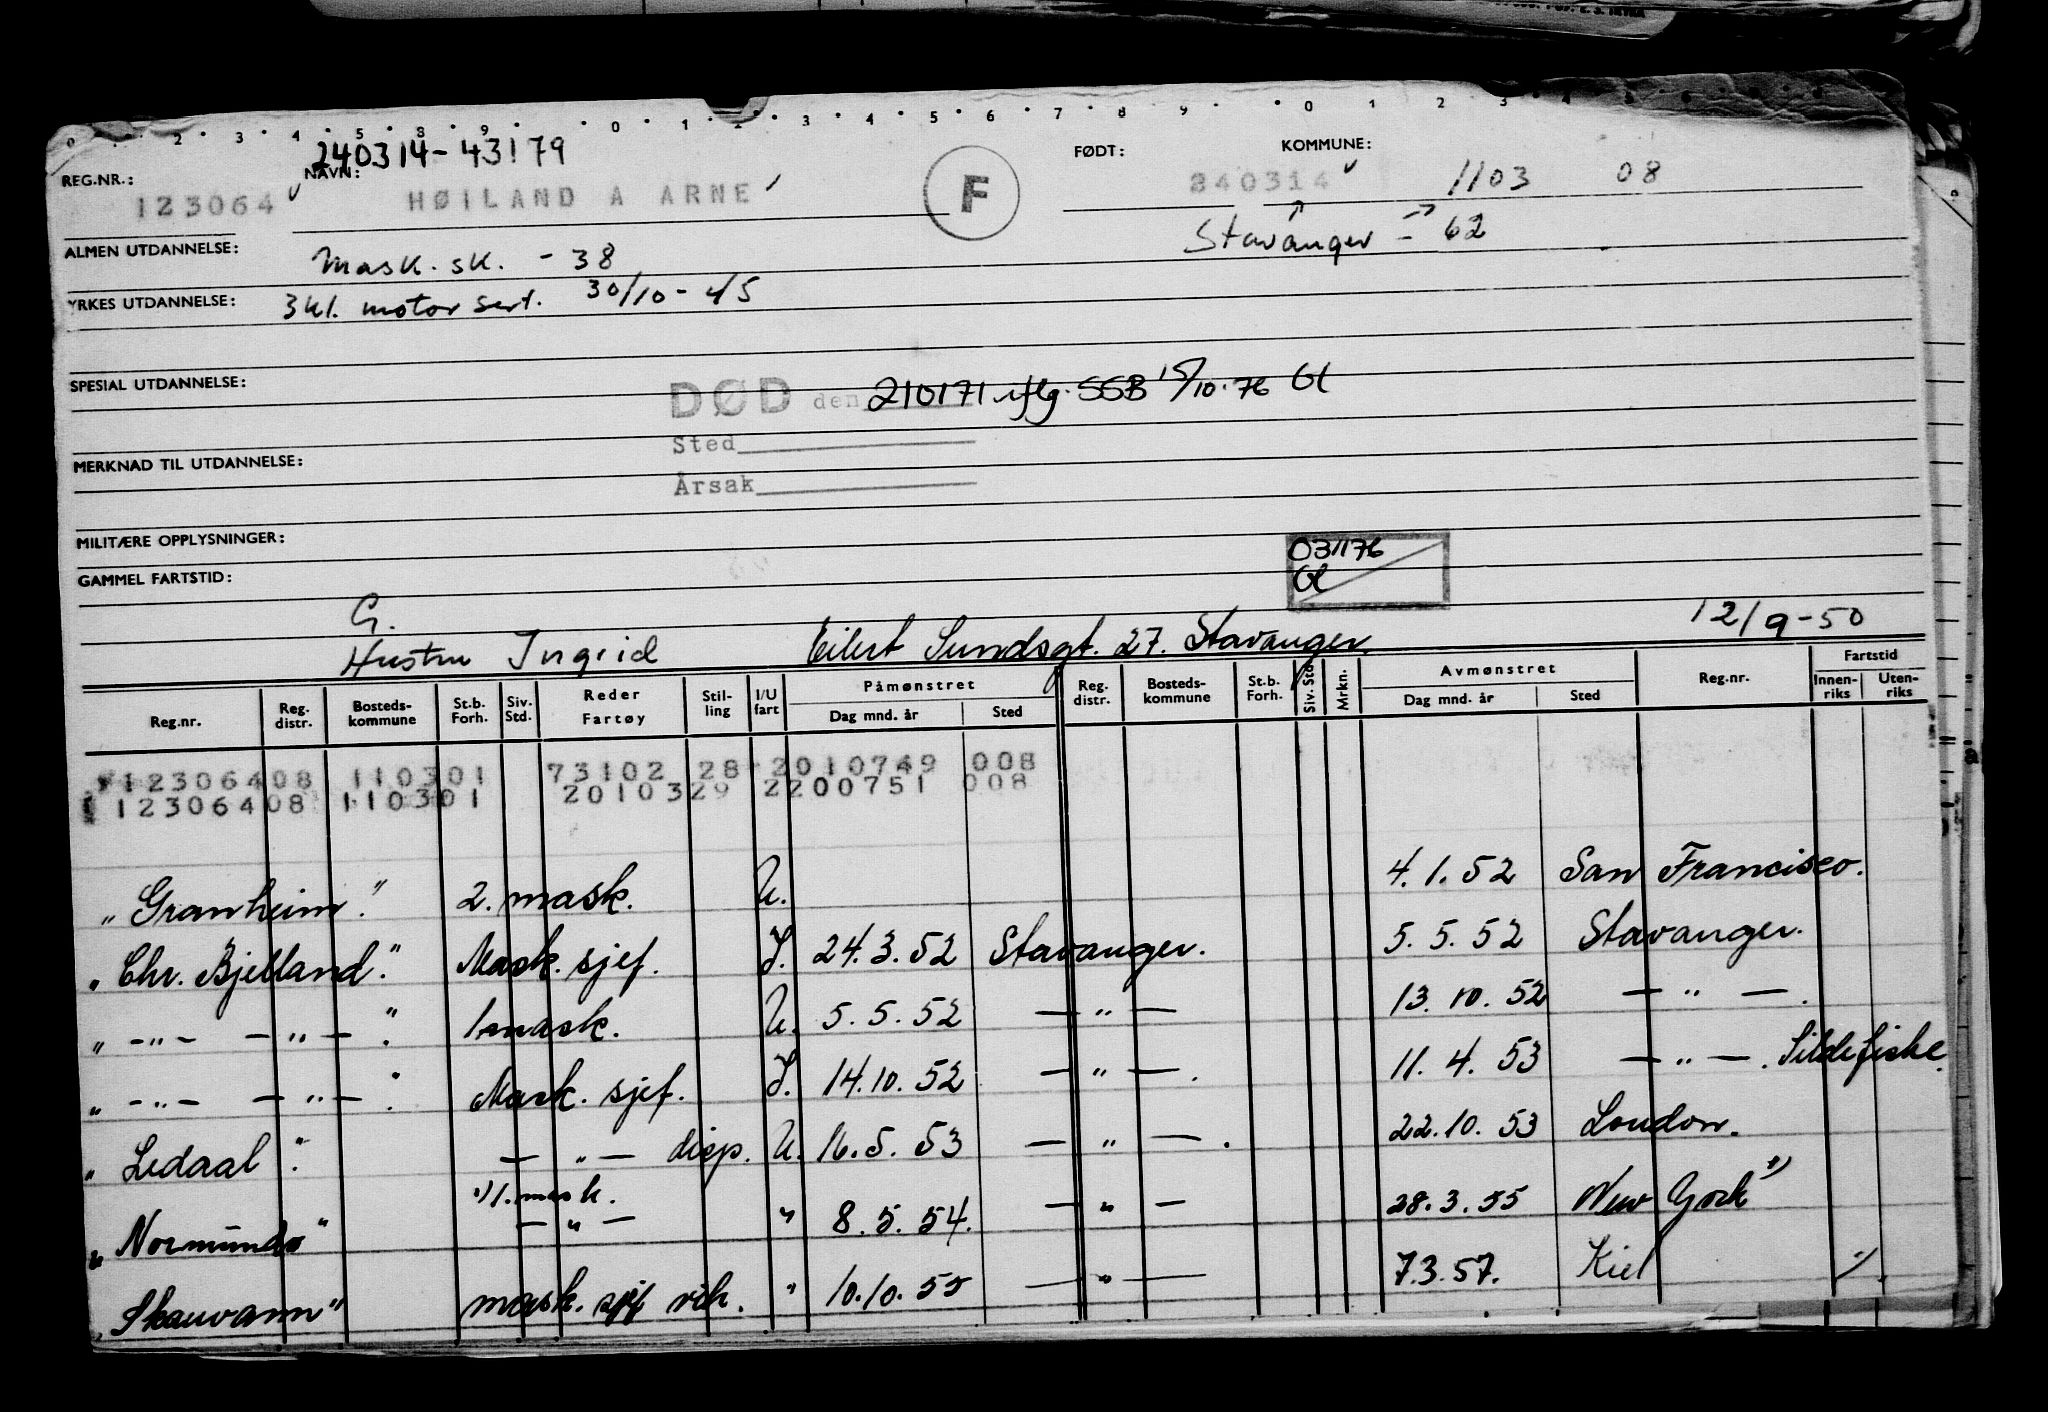 0 . . 2 . 3 . 4 . 5 . 8 . 9 . . 0 . 1 . 2 . 3 . 4 . 5 . 6 . 7 . 8 . 9 . . 0 . 1 . 2 . 3 . 4 . 5
240314-43179
REG.NR.: 123064 NAVN: HØILAND A ARNE F FØDT: 240314 KOMMUNE: 1103 08
Stavanger - 62
ALMEN UTDANNELSE: Mask. sk. - 38
YRKES UTDANNELSE: 3 kl. motor sert. 30/10-45
SPESIAL UTDANNELSE:
DØD den 210171 iflg. SSB 15/10.76 Gl
Sted
MERKNAD TIL UTDANNELSE:
Årsak
MILITÆRE OPPLYSNINGER:
031176
Gl
GAMMEL FARTSTID:
G.
Hustru Ingrid Eilert Sundsgt. 27. Stavanger. 12/9-50
Reg.nr. Reg. distr. Bosteds-kommune St.b. Forh. Siv. Std. Reder Fartøy Stil-ling I/U fart Påmønstret Dag mnd. år Sted Reg. distr. Bosteds-kommune St.b. Forh. Siv. Std. Mrkn. Avmønstret Dag mnd. år Sted Reg.nr. Fartstid Innen-riks Uten-riks
12306408 110301 73102 28 2010749 008
12306408 110301 2010329 2200751 008
"Granheim." 2. mask. U. 4.1.52 San Francisco.
"Chr. Bjelland." Mask. sjef. I. 24.3.52 Stavanger. 5.5.52 Stavanger.
" -"- -"- ." 1 mask. U. 5.5.52 -"- 13.10.52 -"-.
" -"- -"- . Mask. sjef. I. 14.10.52 -"-. 11.4.53 -"-. Sildefiske.
"Ledaal". -"- disp. U. 16.5.53 -"-. 22.10.53 London.
"Normundo" 1) 1. mask. -"- " 8.5.54. -"- 28.3.55 New York 1)
"Skauvann" mask. sjef vik. " 10.10.55 -"- 7.3.57. Kiel